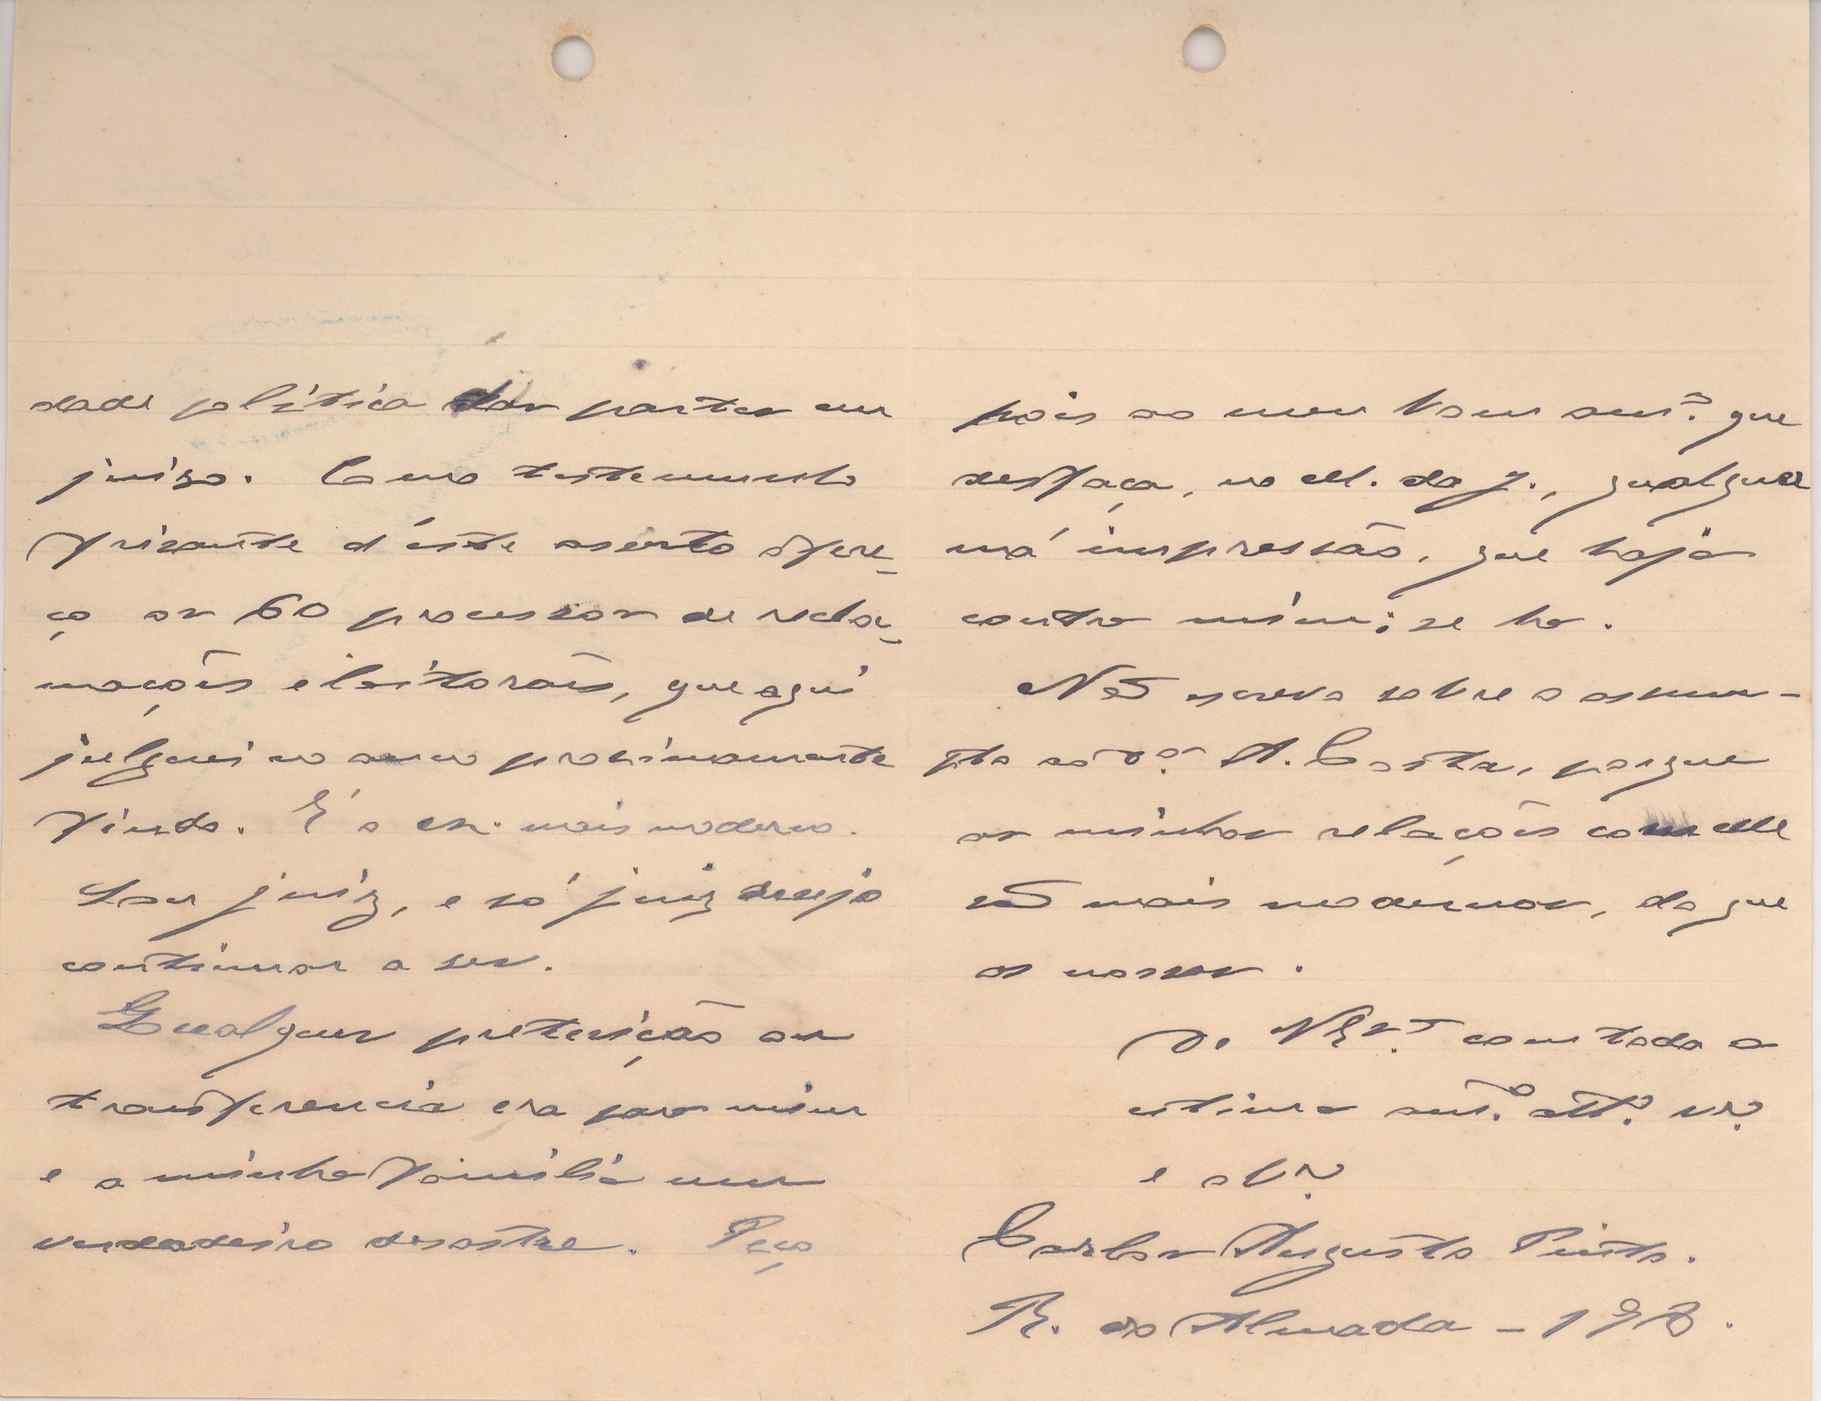 dade politica das partes em
juizo. Como testemunho
frizante d'éste aserto ofere-
ço os 60 processos de recla-
mações eleitorais, que aqui
julguei no anno proximamente
findo. É o ex. mais moderno.
Sou juiz, e só juiz desejo
continuar a ser.
Qualquer preterição ou
transferencia era para mim
e a minha familia um
verdadeiro desastre. Peço
pois ao meu bom am.º que
desfaça, no M. da J., qualquer
má impressão, que haja
contra mim; se ha.
Não escrevo sobre o assum-
pto ao A. Costa, porque
as minhas relações com elle
são mais modernas, do que
as nossas.
De V. Ex.ª com toda a
estima am.º att.º v.ºr
e ob.º
Carlos Augusto Pinto.
R. do Almada -